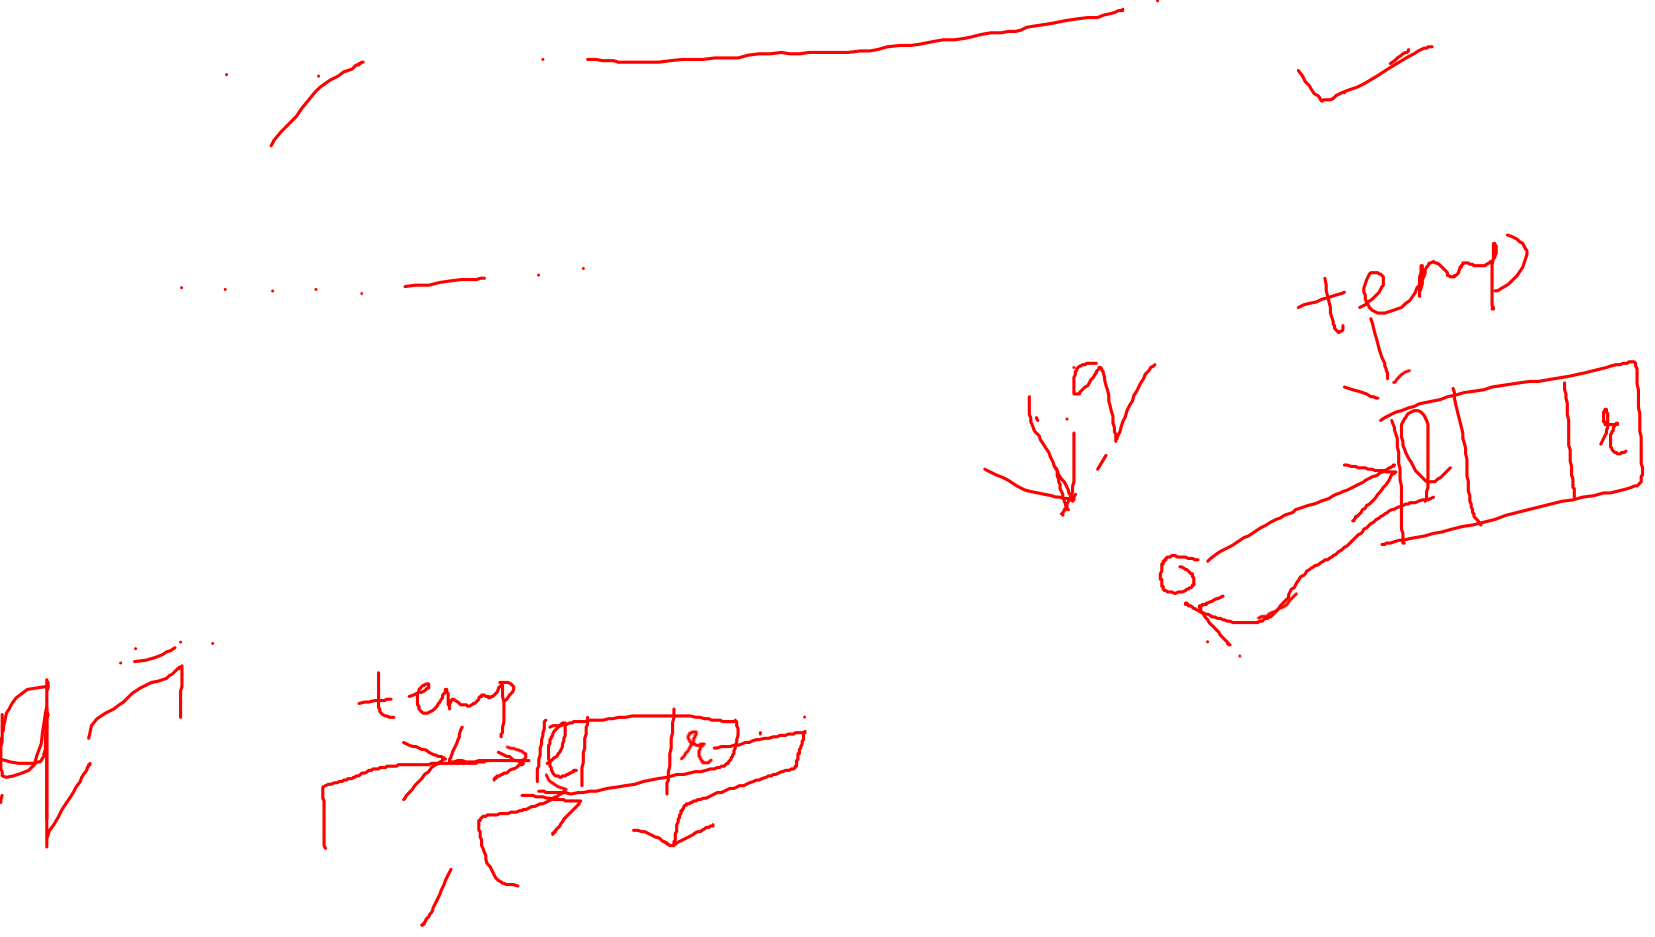 temp
q
l r
temp
q
l r